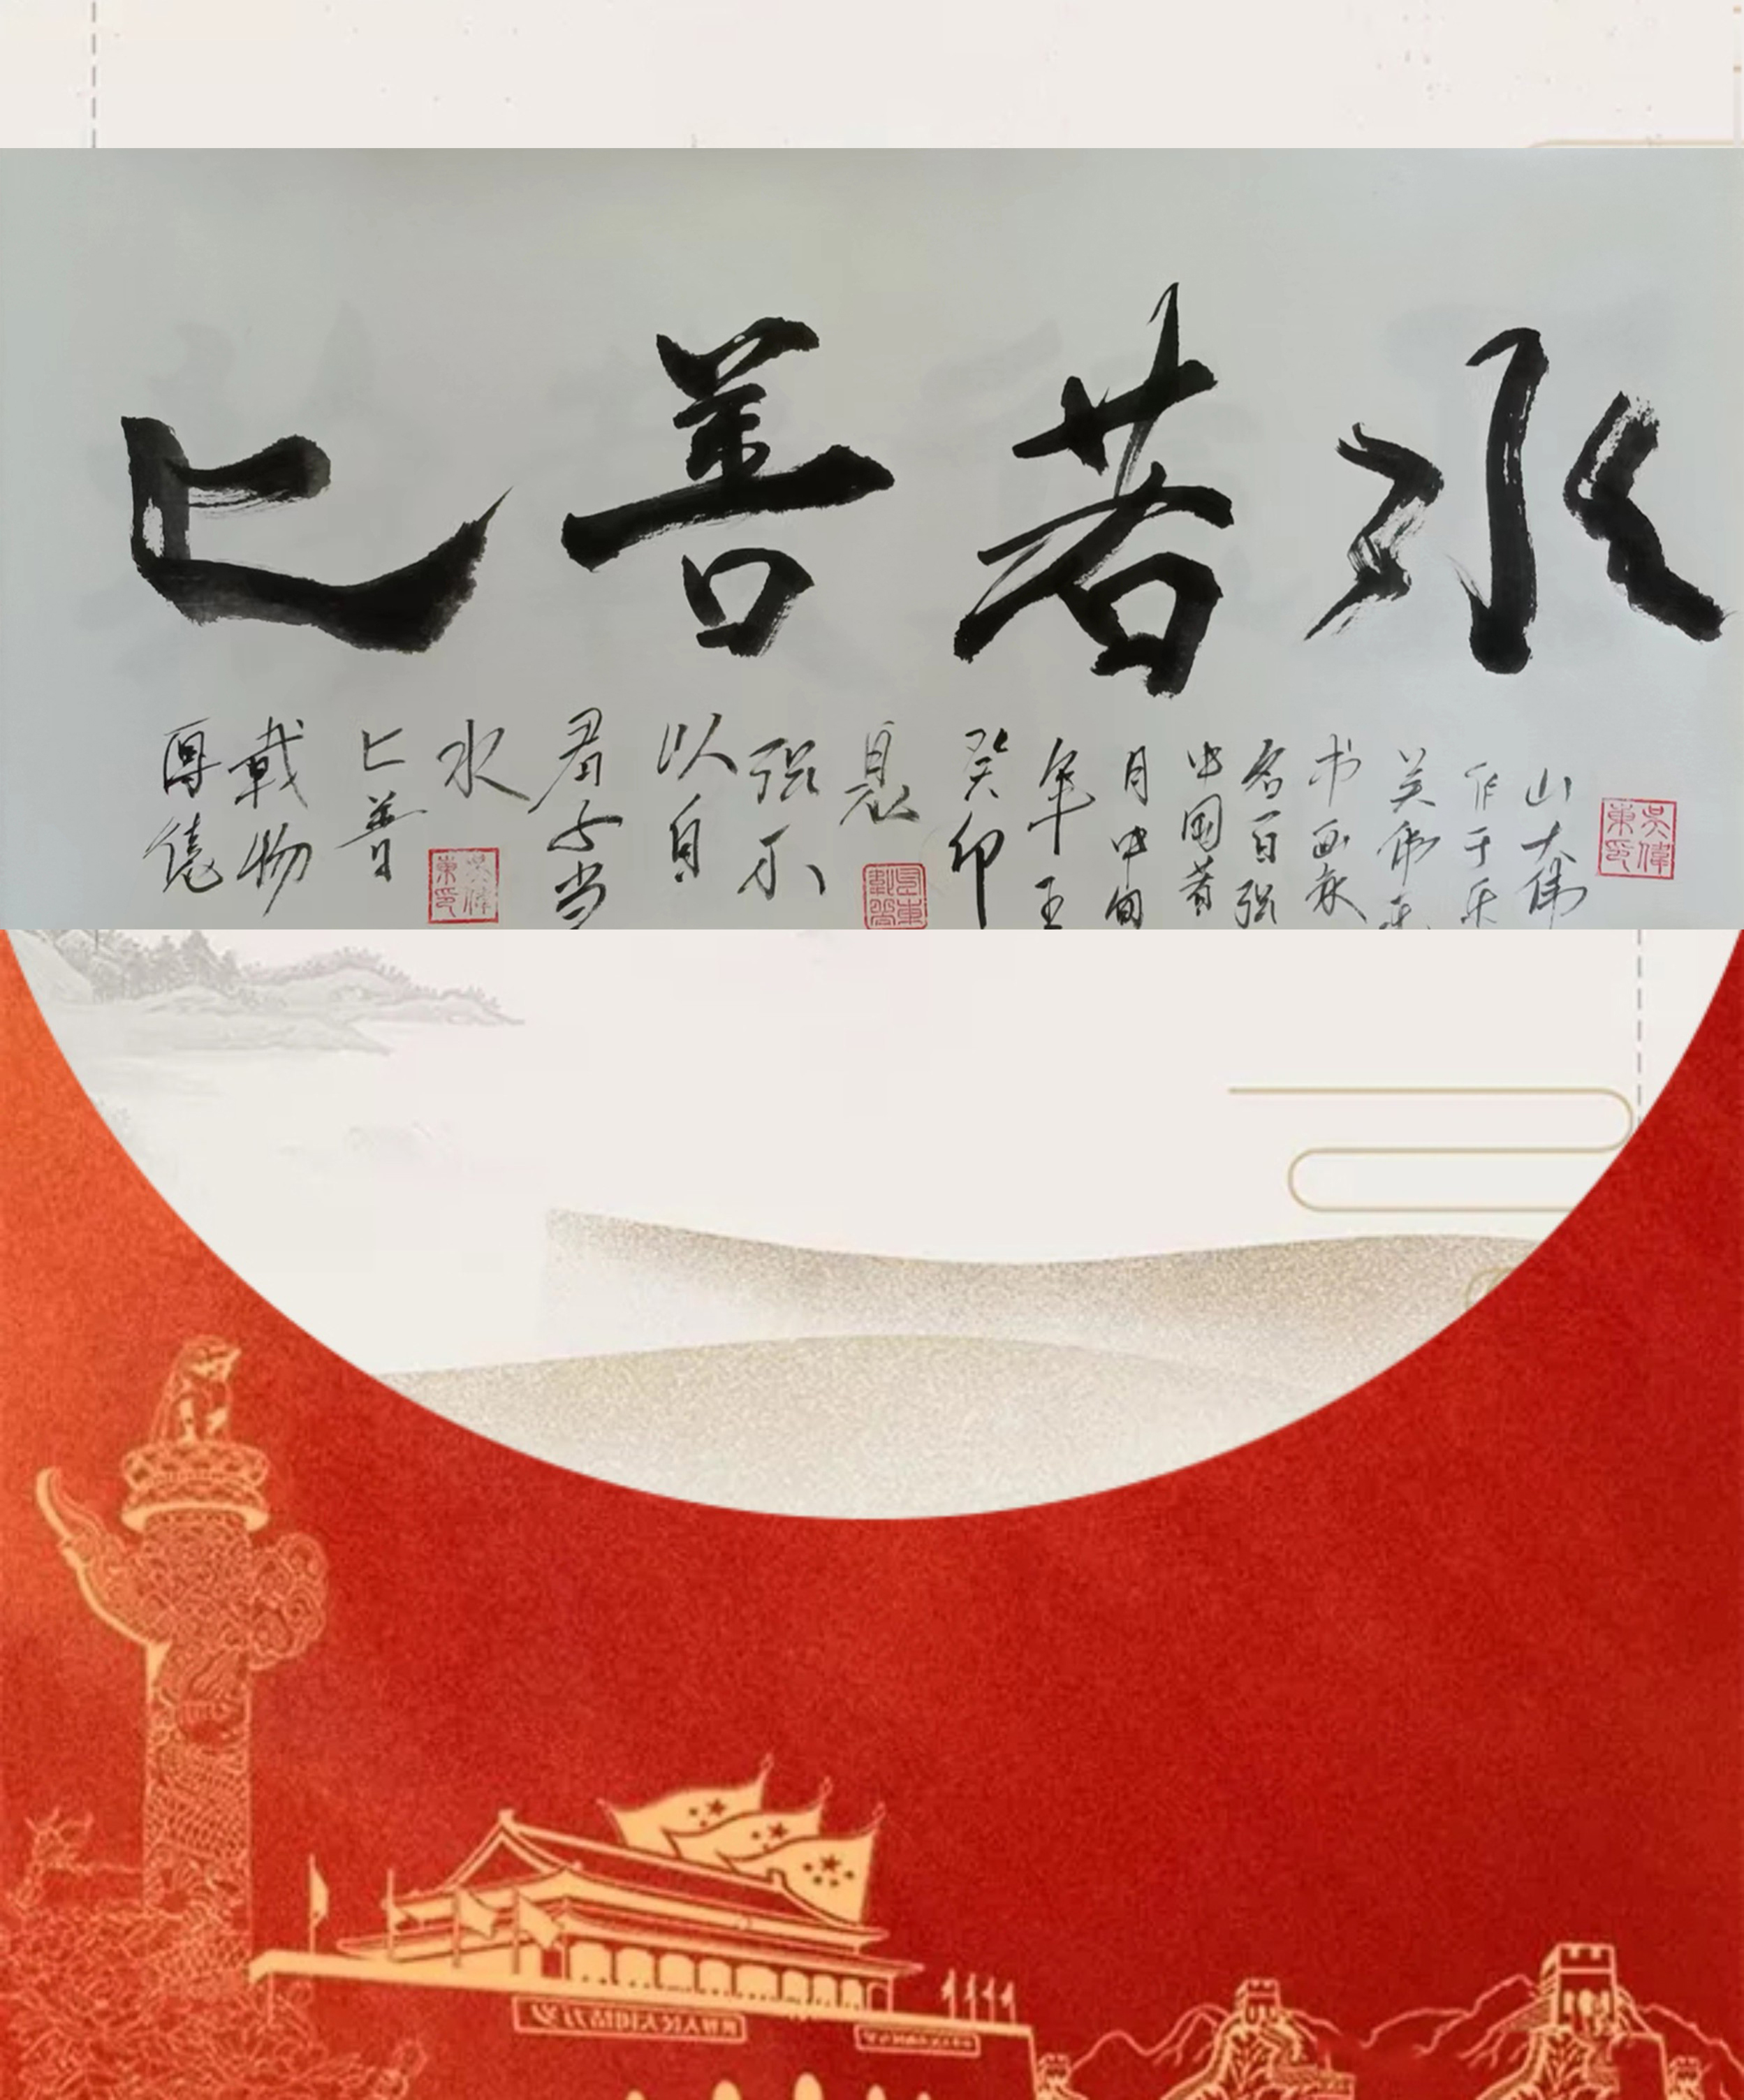 上善若水
厚德
载物
上善
水
君子当
以自
强不
息
癸卯
年
月中旬
中国著
名百强
书画家
吴伟东
作于乐
山大佛
吳偉東印
吳偉東印